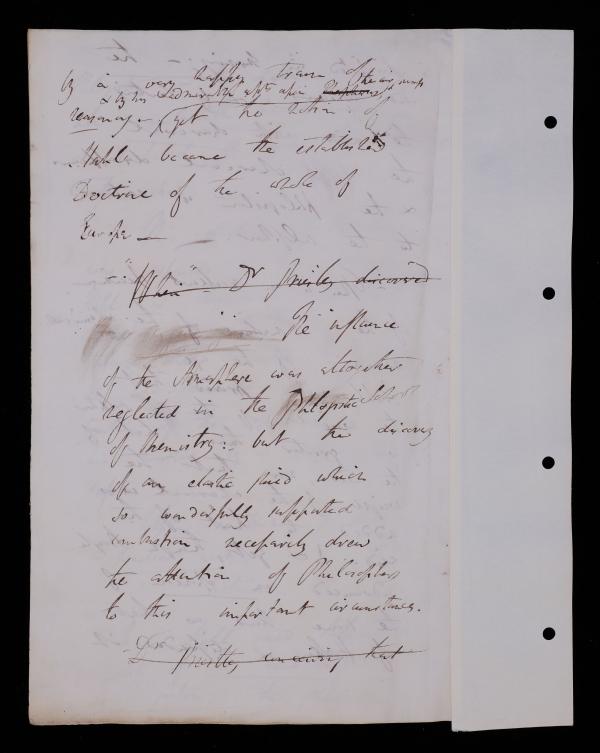 by a very happy train of
& by his admirable expts upon Phosphorus
reasoning. – yet the notion of
Stahl became the established
Doctrine of the whole of
Europe —
– "When" Dr Priestley discovered
The influence
of the Atmosphere was altogether
neglected in the Phlogistic School
of Chemistry:– but the discovery
of an elastic fluid which
so wonderfully supported
combustion necessarily drew
the attention of Philosophers
to this important circumstance.
– Dr Priestley conceiving that